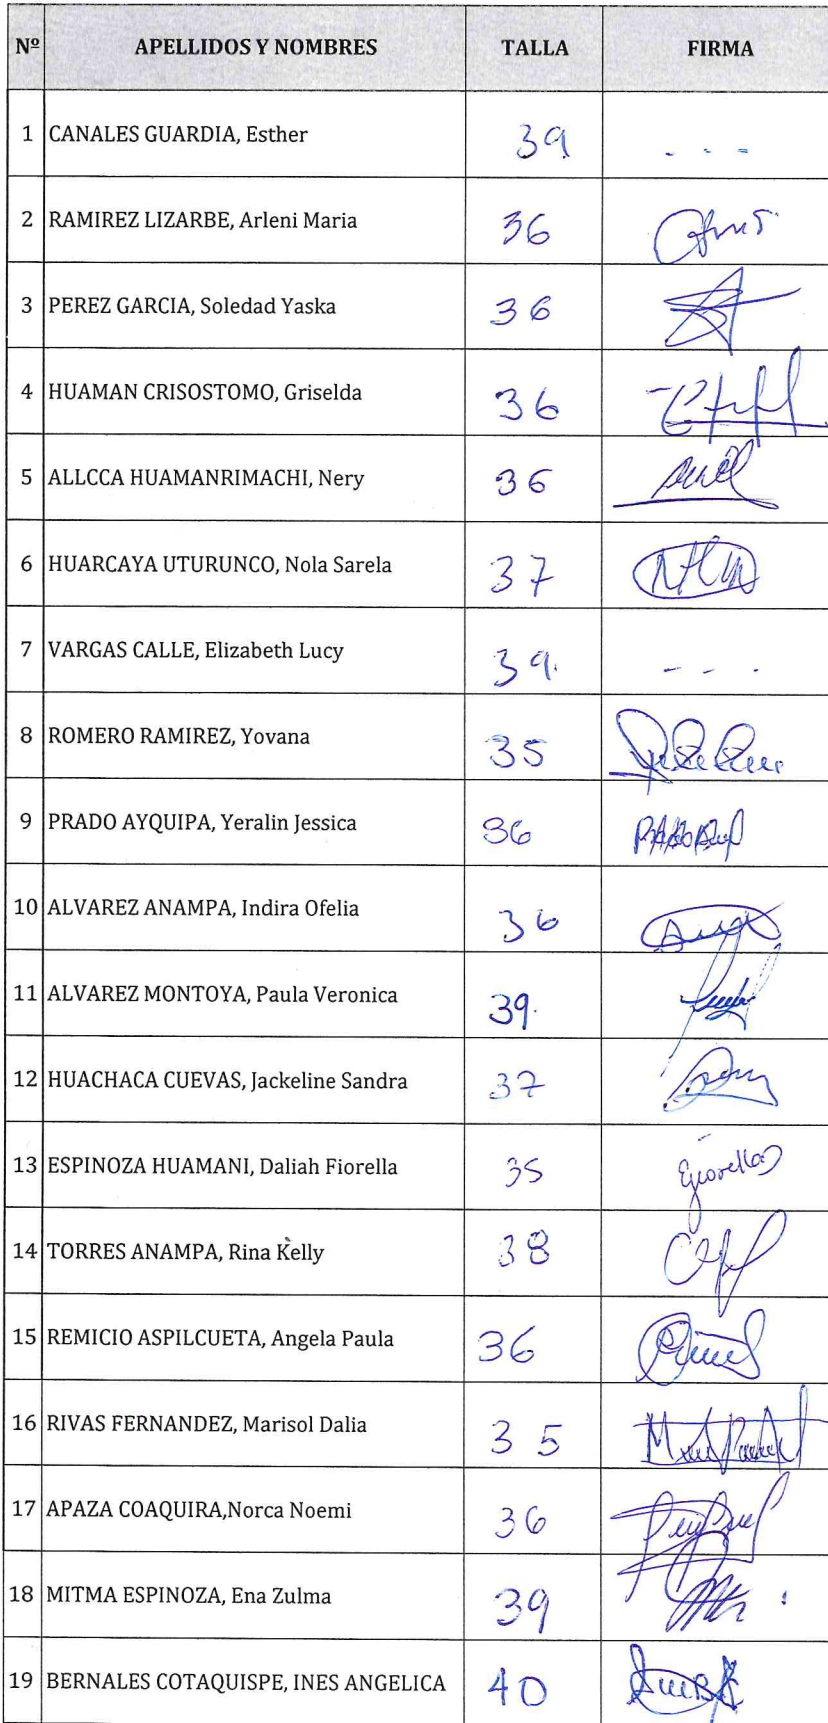 Nº APELLIDOS Y NOMBRES TALLA FIRMA
1 CANALES GUARDIA, Esther 39 - - -
2 RAMIREZ LIZARBE, Arleni Maria 36
3 PEREZ GARCIA, Soledad Yaska 36
4 HUAMAN CRISOSTOMO, Griselda 36
5 ALLCCA HUAMANRIMACHI, Nery 36
6 HUARCAYA UTURUNCO, Nola Sarela 37
7 VARGAS CALLE, Elizabeth Lucy 39. - - -
8 ROMERO RAMIREZ, Yovana 35
9 PRADO AYQUIPA, Yeralin Jessica 36
10 ALVAREZ ANAMPA, Indira Ofelia 36
11 ALVAREZ MONTOYA, Paula Veronica 39.
12 HUACHACA CUEVAS, Jackeline Sandra 37
13 ESPINOZA HUAMANI, Daliah Fiorella 35
14 TORRES ANAMPA, Rina Kelly 38
15 REMICIO ASPILCUETA, Angela Paula 36
16 RIVAS FERNANDEZ, Marisol Dalia 35
17 APAZA COAQUIRA,Norca Noemi 36
18 MITMA ESPINOZA, Ena Zulma 39
19 BERNALES COTAQUISPE, INES ANGELICA 40